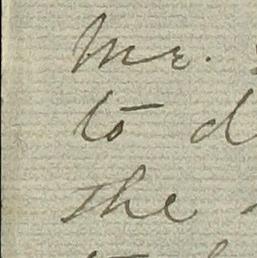 Mr.
to d
the